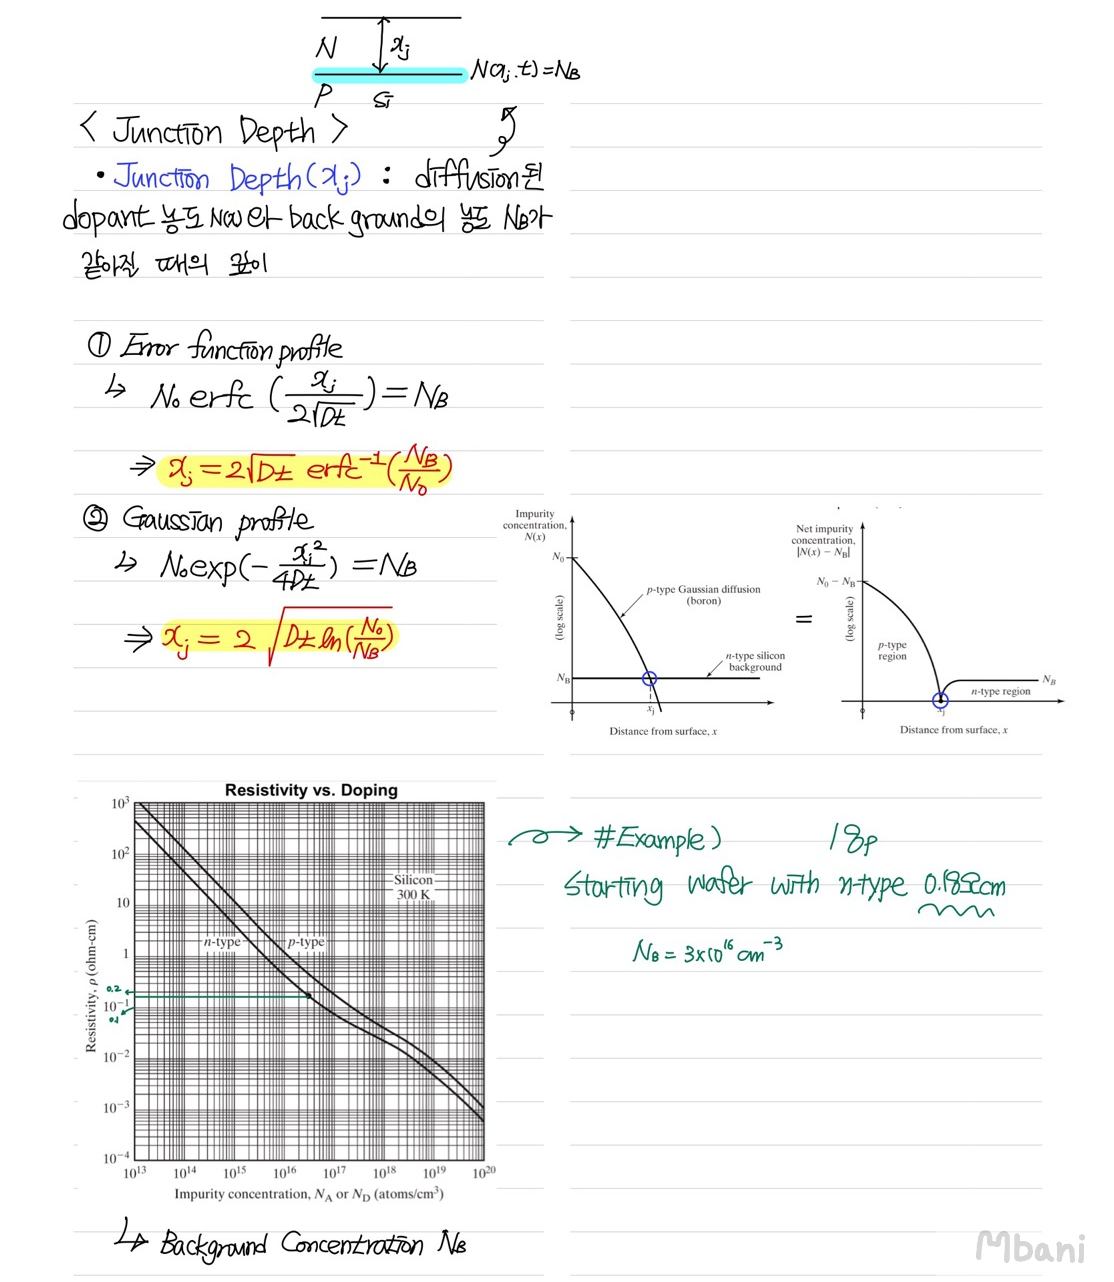 N
xj
N(xj.t)=NB
P
Si
< Junction Depth >
• Junction Depth(xj) : diffusion된
dopant 농도 N(x)와 back ground의 농도 NB가
같아질 때의 깊이
① Error function profile
↳ N₀ erfc (xj/2√Dt) = NB
⇒ xj = 2√Dt erfc⁻¹(NB/N₀)
② Gaussian profile
↳ N₀exp(-xj²/4Dt) = NB
⇒ xj = 2√Dt ln(N₀/NB)
Impurity
concentration,
N(x)
N₀
(log scale)
p-type Gaussian diffusion
(boron)
n-type silicon
background
NB
xj
0
Distance from surface, x
=
Net impurity
concentration,
|N(x) − NB|
N₀ − NB
(log scale)
p-type
region
NB
n-type region
xj
0
Distance from surface, x
Resistivity vs. Doping
10³
10²
10
1
10⁻¹
10⁻²
10⁻³
10⁻⁴
Resistivity, ρ (ohm-cm)
0.2
0.1
Silicon
300 K
n-type
p-type
10¹³ 10¹⁴ 10¹⁵ 10¹⁶ 10¹⁷ 10¹⁸ 10¹⁹ 10²⁰
Impurity concentration, NA or ND (atoms/cm³)
↳ Background Concentration NB
→ #Example) 18p
Starting wafer with n-type 0.18Ωcm
NB = 3×10¹⁶ cm⁻³
Mbani